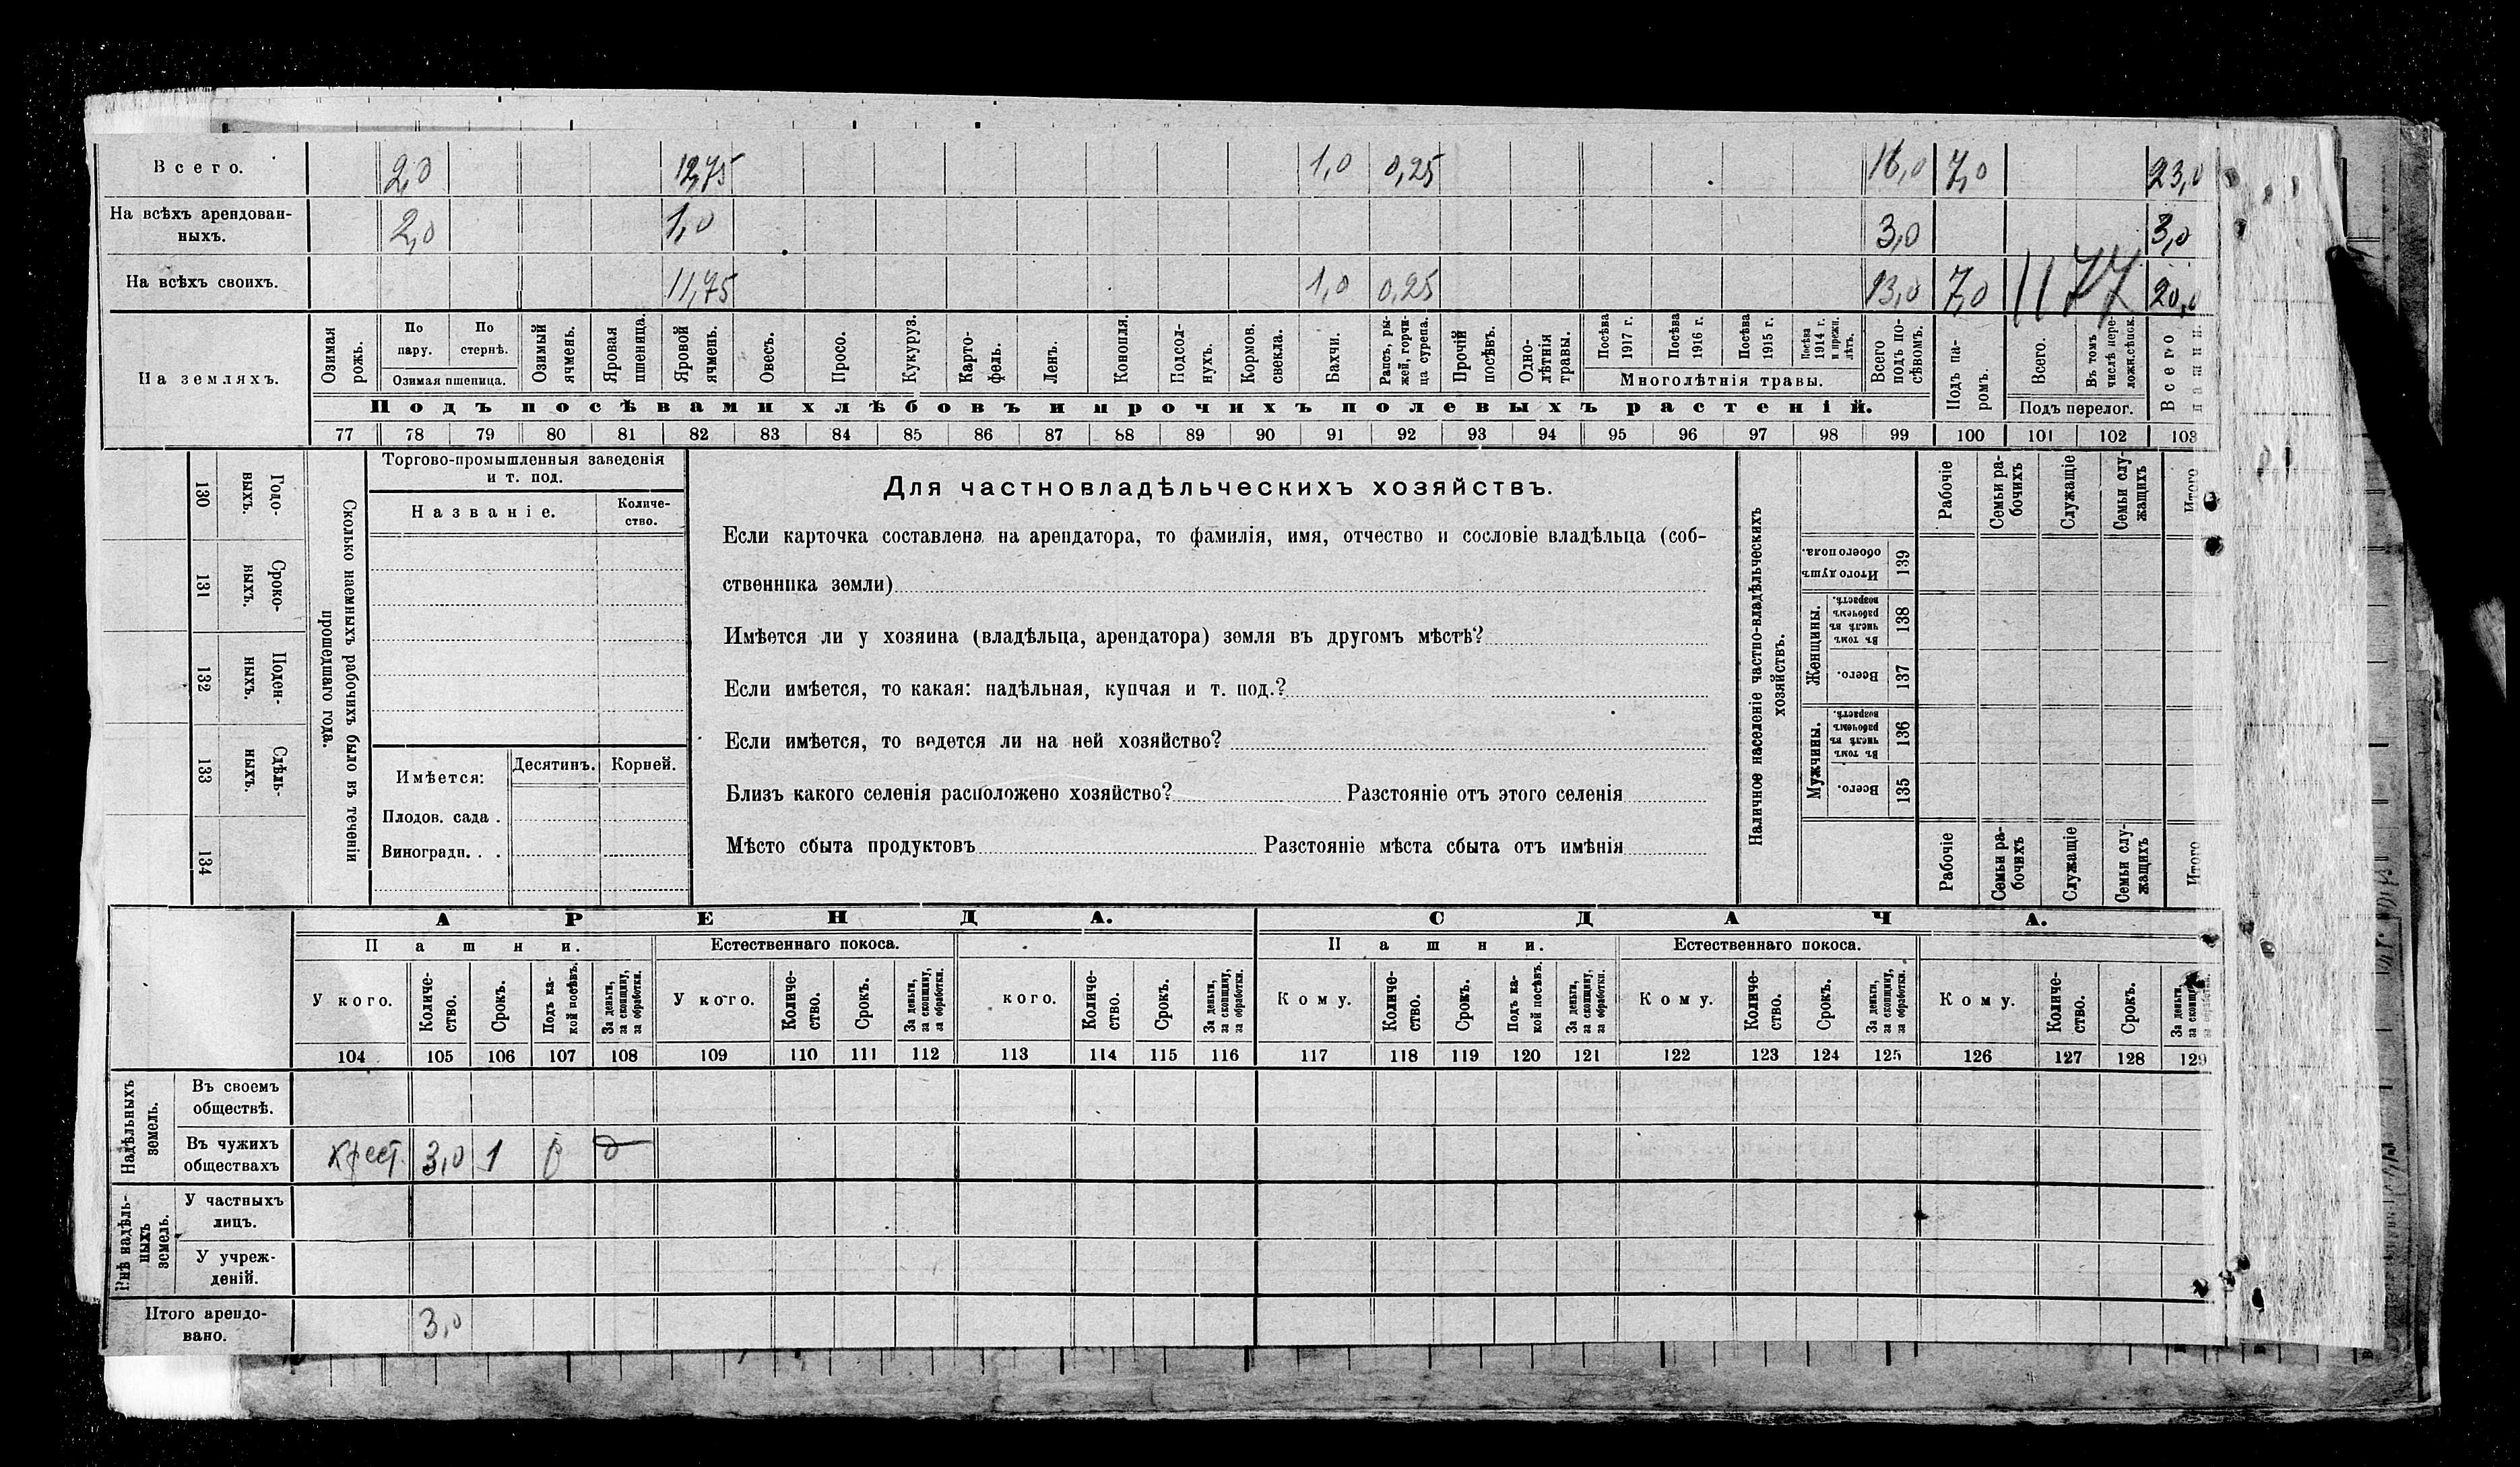 Всего. 2,0 12,75 1,0 0,25 16,0 7,0 23,0
На всѣхъ арендован-
ныхъ. 2,0 1,0 3,0 3,0
На всѣхъ своихъ. 11,75 1,0 0,25 13,0 7,0 1177 20,0
На земляхъ.
Озимая рожь.
По пару.
По стернѣ.
Озимая пшеница.
Озимый ячмень.
Яровая пшеница.
Яровой ячмень.
Овесъ.
Просо.
Кукуруз.
Карто-
фель.
Ленъ.
Конопля.
Подсол-
нухъ.
Кормов. свекла.
Бахчи.
Рапсъ, ры-
жей, горчи-
ца сурепа.
Прочій посѣвъ.
Одно-
лѣтнія травы.
Посѣва 1917 г.
Посѣва 1916 г.
Посѣва 1915 г.
Посѣва 1914 г. и прежн. лѣтъ.
Многолѣтнія травы.
Всего подъ по-
сѣвомъ.
Подъ па-
ромъ.
Всего.
Въ томъ числѣ пере-
Подъ перелог.
Всего пашни.
Подъ посѣвами хлѣбовъ и прочихъ полевыхъ растеній.
77 78 79 80 81 82 83 84 85 86 87 88 89 90 91 92 93 94 95 96 97 98 99 100 101 102 103
130 Годо-
выхъ.
131 Сроко-
ныхъ.
132 Поден-
ныхъ.
133 Сдѣль-
ныхъ.
134
Сколько наемныхъ рабочихъ было въ теченіи
прошедшаго года.
Торгово-промышленныя заведенія
и т. под.
Названіе.
Количе-
ство.
Имѣется:
Десятинъ. Корней.
Плодов. сада .
Виноградн. . .
Для частновладѣльческихъ хозяйствъ.
Если карточка составлена на арендатора, то фамилія, имя, отчество и сословіе владѣльца (соб-
ственника земли)
Имѣется ли у хозяина (владѣльца, арендатора) земля въ другомъ мѣстѣ?
Если имѣется, то какая: надѣльная, купчая и т. под.?
Если имѣется, то ведется ли на ней хозяйство?
Близъ какого селенія расположено хозяйство? Разстояніе отъ этого селенія
Мѣсто сбыта продуктовъ Разстояніе мѣста сбыта отъ имѣнія
Наличное населеніе частно-владѣльческихъ
хозяйствъ.
Рабочіе
Семьи ра-
бочихъ
Служащіе
Семьи слу-
жащихъ
Итого
Итого душъ обоего пола. 139
Женщины.
Въ томъ числѣ въ рабочемъ возрастѣ. 138
Всего. 137
Мужчины.
Въ томъ числѣ въ рабочемъ возрастѣ. 136
Всего. 135
Рабочіе
Семьи ра-
бочихъ
Служащіе
Семьи слу-
жащихъ
Итого
АРЕНДА. СДАЧА.
Пашни. Естественнаго покоса. Пашни. Естественнаго покоса.
У кого.
Количе-
ство.
Срокъ.
Подъ ка-
кой посѣвъ.
За деньги, за скопщину, за обработки.
У кого.
Количе-
ство.
Срокъ.
За деньги, за скопщину, за обработки.
кого.
Количе-
ство.
Срокъ.
За деньги, за скопщину, за обработки.
Кому.
Количе-
ство.
Срокъ.
Подъ ка-
кой посѣвъ.
За деньги, за скопщину, за обработки.
Кому.
Количе-
ство.
Срокъ.
За деньги, за скопщину, за обработки.
Кому.
Количе-
ство.
Срокъ.
За деньги,
104 105 106 107 108 109 110 111 112 113 114 115 116 117 118 119 120 121 122 123 124 125 126 127 128 129
Надѣльныхъ
земель.
Въ своемъ
обществѣ.
Въ чужихъ
обществахъ
крест. 3,0 1 д
земель.
У частныхъ
лицъ.
У учреж-
деній.
Итого арендо-
вано. 3,0